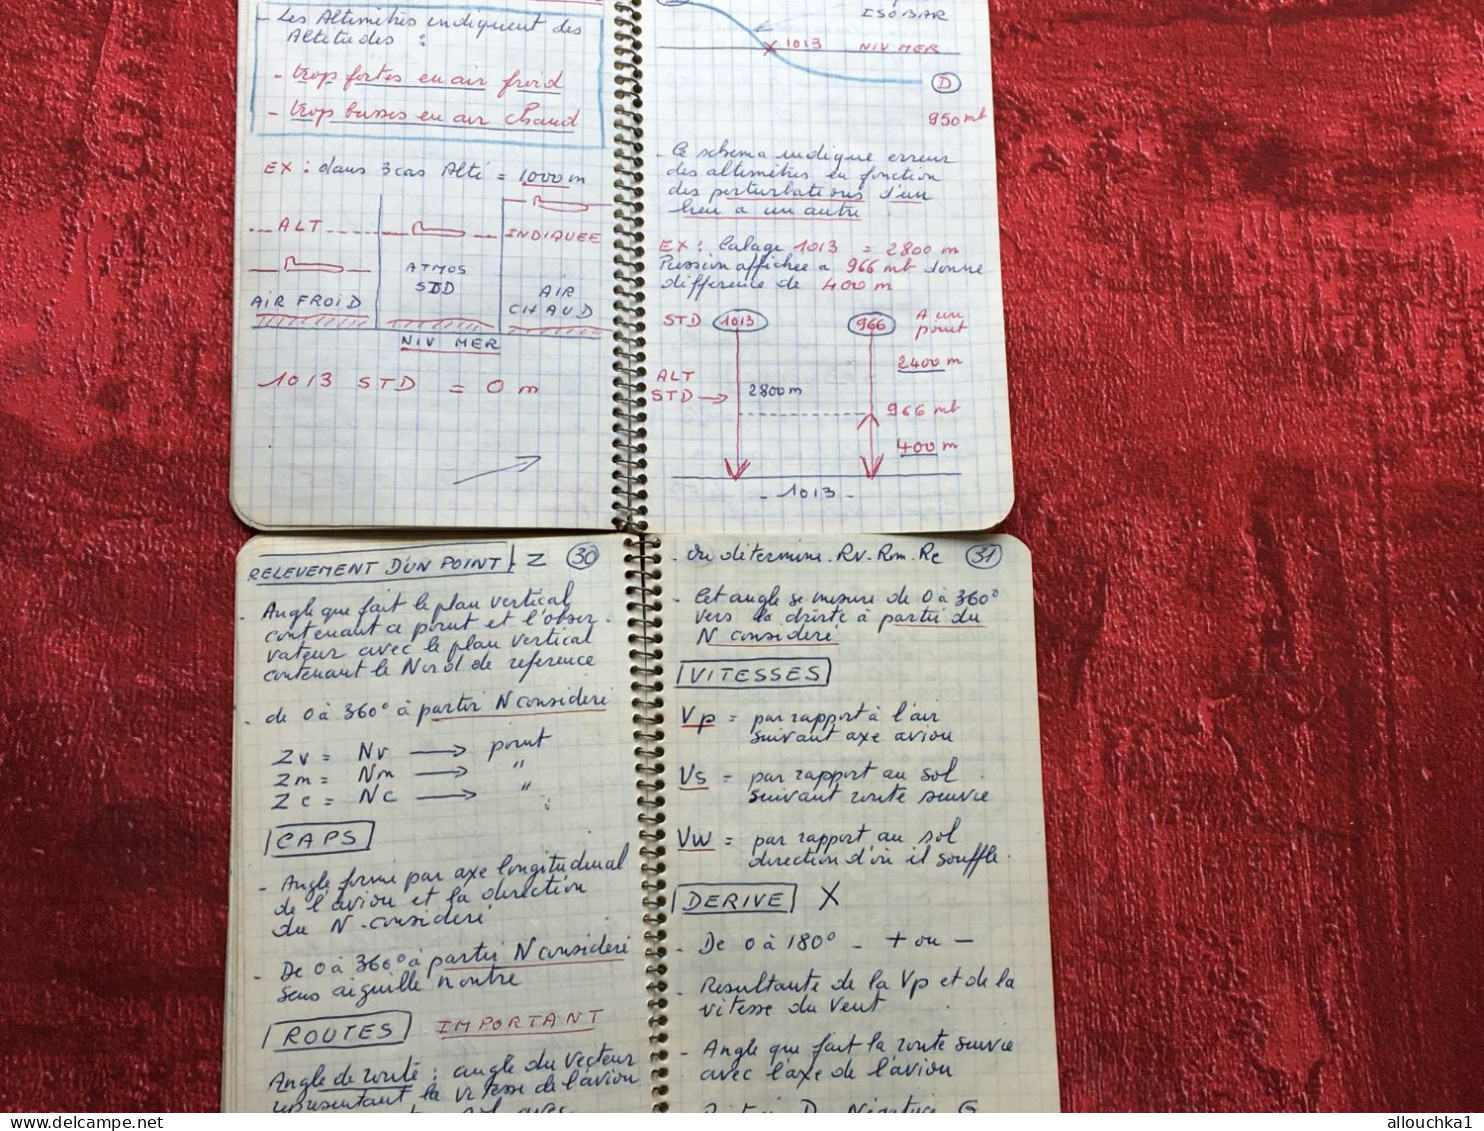 - Les Altimètres indiquent des
Altitudes :
- trop fortes en air froid
- trop basses en air chaud
EX : dans 3 cas Alté = 1000 m
ALT
INDIQUEE
ATMOS
STD
AIR FROID
AIR
CHAUD
NIV MER
1013 STD = 0 m
ISOBAR
1013 NIV MER
D
950 mb
- Ce schema indique erreur
des altimètres en fonction
des perturbations d'un
lieu a un autre
EX : Calage 1013 = 2800 m
Pression affichée a 966 mb donne
différence de 400 m
STD 1013 966 A un
point
2400 m
ALT
STD → 2800 m
966 mb
400 m
- 1013 -
RELEVEMENT D'UN POINT Z 30
- Angle que fait le plan vertical
contenant a point et l'obser-
vateur avec le plan vertical
contenant le Nord de reference
- de 0 à 360° à partir N consideré
Zv = Nv → point
Zm = Nm → "
Zc = Nc → "
CAPS
- Angle forme par axe longitudinal
de l'avion et la direction
du N - consideré
- De 0 à 360° à partir N consideré
sens aiguille montre
ROUTES IMPORTANT
Angle de route : angle du vecteur
representant la vitesse de l'avion
avec
- On détermine . Rv. Rm. Rc 31
- Cet angle se mesure de 0 à 360°
vers la droite à partir du
N consideré
VITESSES
Vp = par rapport à l'air
suivant axe avion
Vs = par rapport au sol
suivant route suivie
Vw = par rapport au sol
direction d'où il souffle.
DERIVE X
- De 0 à 180° - + ou -
- Resultante de la Vp et de la
vitesse du Vent
- Angle que fait la route suivie
avec l'axe de l'avion
D Négative G
allouchka1